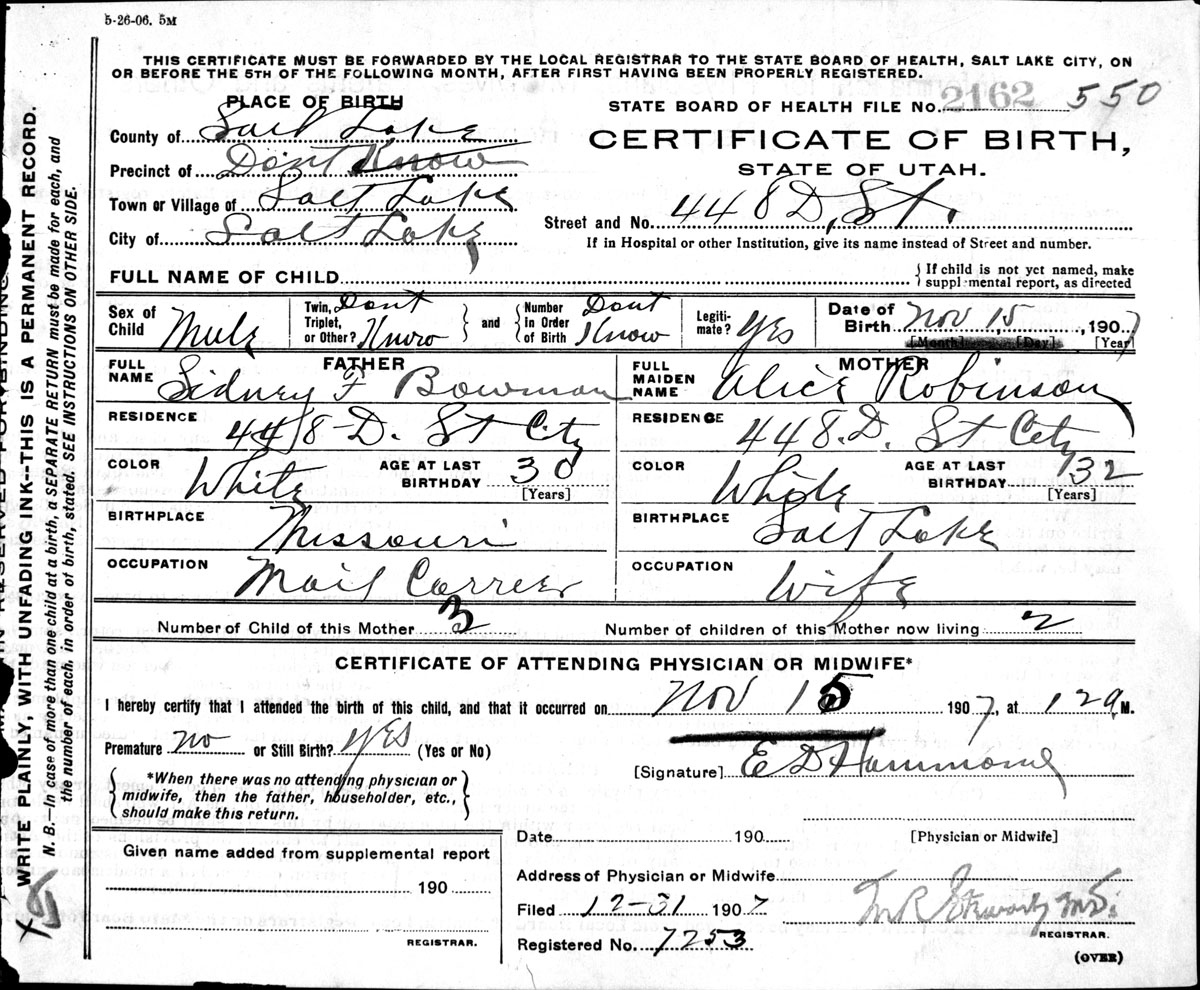 5-26-06. 5M
THIS CERTIFICATE MUST BE FORWARDED BY THE LOCAL REGISTRAR TO THE STATE BOARD OF HEALTH, SALT LAKE CITY, ON
OR BEFORE THE 5TH OF THE FOLLOWING MONTH, AFTER FIRST HAVING BEEN PROPERLY REGISTERED.
PLACE OF BIRTH
STATE BOARD OF HEALTH FILE No. 2162 550
County of Salt Lake
CERTIFICATE OF BIRTH,
Precinct of Dont Know
STATE OF UTAH.
Town or Village of Salt Lake
Street and No. 448 D, St.
City of Salt Lake
If in Hospital or other Institution, give its name instead of Street and number.
FULL NAME OF CHILD
{ If child is not yet named, make
supplemental report, as directed
Sex of Child Male
Twin, Triplet, or Other? Dont Know
and
Number in Order of Birth Dont Know
Legitimate? Yes
Date of Birth Nov 15, 1907
[Month] [Day] [Year]
FATHER
FULL NAME Sidney F Bowman
RESIDENCE 448-D. St City
COLOR White
AGE AT LAST BIRTHDAY 30
[Years]
BIRTHPLACE Missouri
OCCUPATION Mail Carreer
MOTHER
FULL MAIDEN NAME Alice Robinson
RESIDENCE 448.D. St City
COLOR White
AGE AT LAST BIRTHDAY 32
[Years]
BIRTHPLACE Salt Lake
OCCUPATION Wife
Number of Child of this Mother 3
Number of children of this Mother now living 2
CERTIFICATE OF ATTENDING PHYSICIAN OR MIDWIFE*
I hereby certify that I attended the birth of this child, and that it occurred on Nov 15 1907, at 12 a M.
Premature no or Still Birth? Yes (Yes or No)
[Signature] E D Hammond
*When there was no attending physician or
midwife, then the father, householder, etc.,
should make this return.
Date 190
[Physician or Midwife]
Given name added from supplemental report
190
REGISTRAR.
Address of Physician or Midwife
Filed 12-31 1907
M.D.
REGISTRAR.
Registered No. 7253
(OVER)
WRITE PLAINLY, WITH UNFADING INK--THIS IS A PERMANENT RECORD.
N. B.—In case of more than one child at a birth, a SEPARATE RETURN must be made for each, and
the number of each, in order of birth, stated. SEE INSTRUCTIONS ON OTHER SIDE.